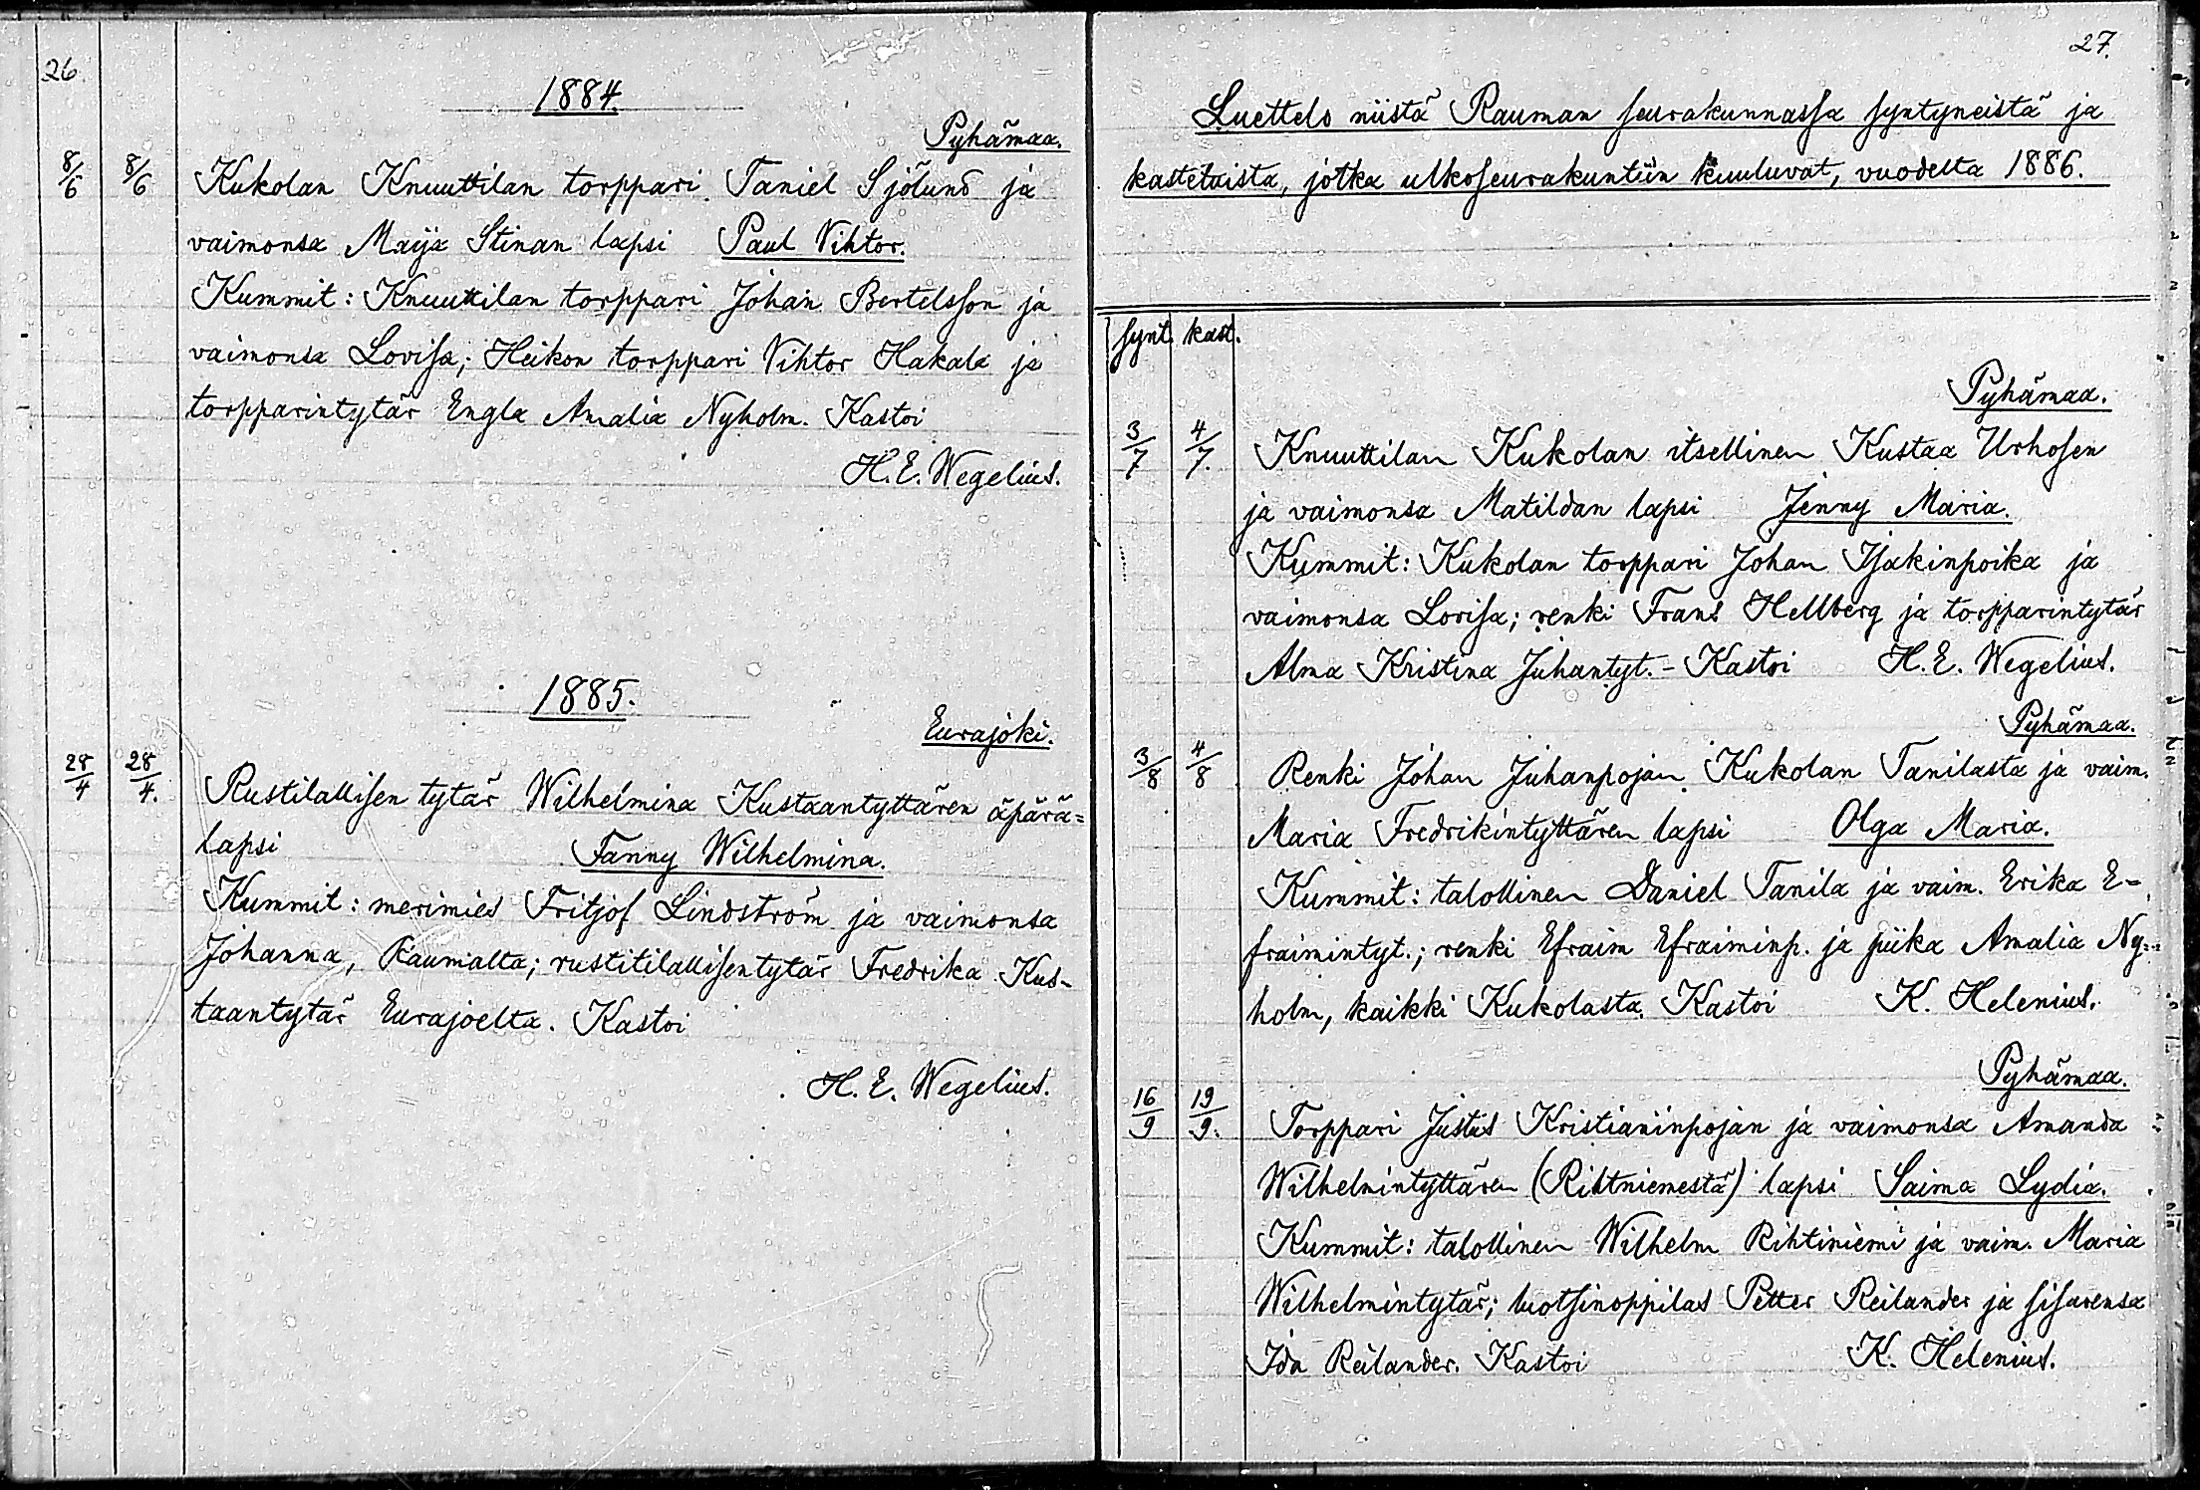 26.
1884.
Pyhämaa.
8/6 8/6 Kukolan Knuuttilan torppari Taniel Sjölund ja
vaimonsa Maija Stinan lapsi Paul Vihtor.
Kummit: Knuuttilan torppari Johan Bertelsson ja
vaimonsa Lovisa; Heikon torppari Vihtor Hakala ja
torpparintytär Engla Amalia Nyholm. Kastoi
H. E. Wegelius.
1885.
Eurajoki.
28/4 28/4. Rustilallisen tytär Wilhelmina Kustaantyttären äpärä=
lapsi Fanny Wilhelmina.
Kummit: merimies Fritjof Lindström ja vaimonsa
Johanna, Raumalta; rustitilallisentytär Fredrika Kus-
taantytär Eurajoelta. Kastoi
H. E. Wegelius.
27.
Luettelo niistä Rauman seurakunnassa syntyneistä ja
kastetuista, jotka ulkoseurakuntiin kuuluvat, vuodelta 1886.
synt. kast.
Pyhämaa.
3/7 4/7. Knuuttilan Kukolan itsellinen Kustaa Urhosen
ja vaimonsa Matildan lapsi Jenny Maria.
Kummit: Kukolan torppari Johan Isakinpoika ja
vaimonsa Lovisa; renki Frans Hellberg ja torpparintytär
Alma Kristina Juhantyt. - Kastoi H. E. Wegelius.
Pyhämaa.
3/8 4/8 Renki Johan Juhanpojan Kukolan Tanilasta ja vaim.
Maria Fredrikintyttären lapsi Olga Maria.
Kummit: talollinen Daniel Tanila ja vaim. Erika E-
fraimintyt.; renki Efraim Efraiminp. ja piika Amalia Ny=
holm, kaikki Kukolasta. Kastoi K. Helenius.
Pyhämaa.
16/9 19/9. Torppari Justus Kristianinpojan ja vaimonsa Amanda
Wilhelmintyttären (Rihtniemestä) lapsi Saima Lydia.
Kummit: talollinen Wilhelm Rihtiniemi ja vaim. Maria
Wilhelmintytär; luotsinoppilas Petter Reilander ja sisarensa
Ida Reilander. Kastoi K. Helenius.